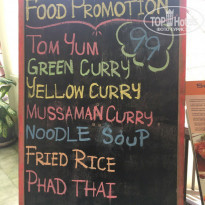 FOOD PROMOTION
TOM YUM 99
GREEN CURRY
YELLOW CURRY
MUSSAMAN CURRY
NOODLE SOUP
FRIED RICE
PHAD THAI